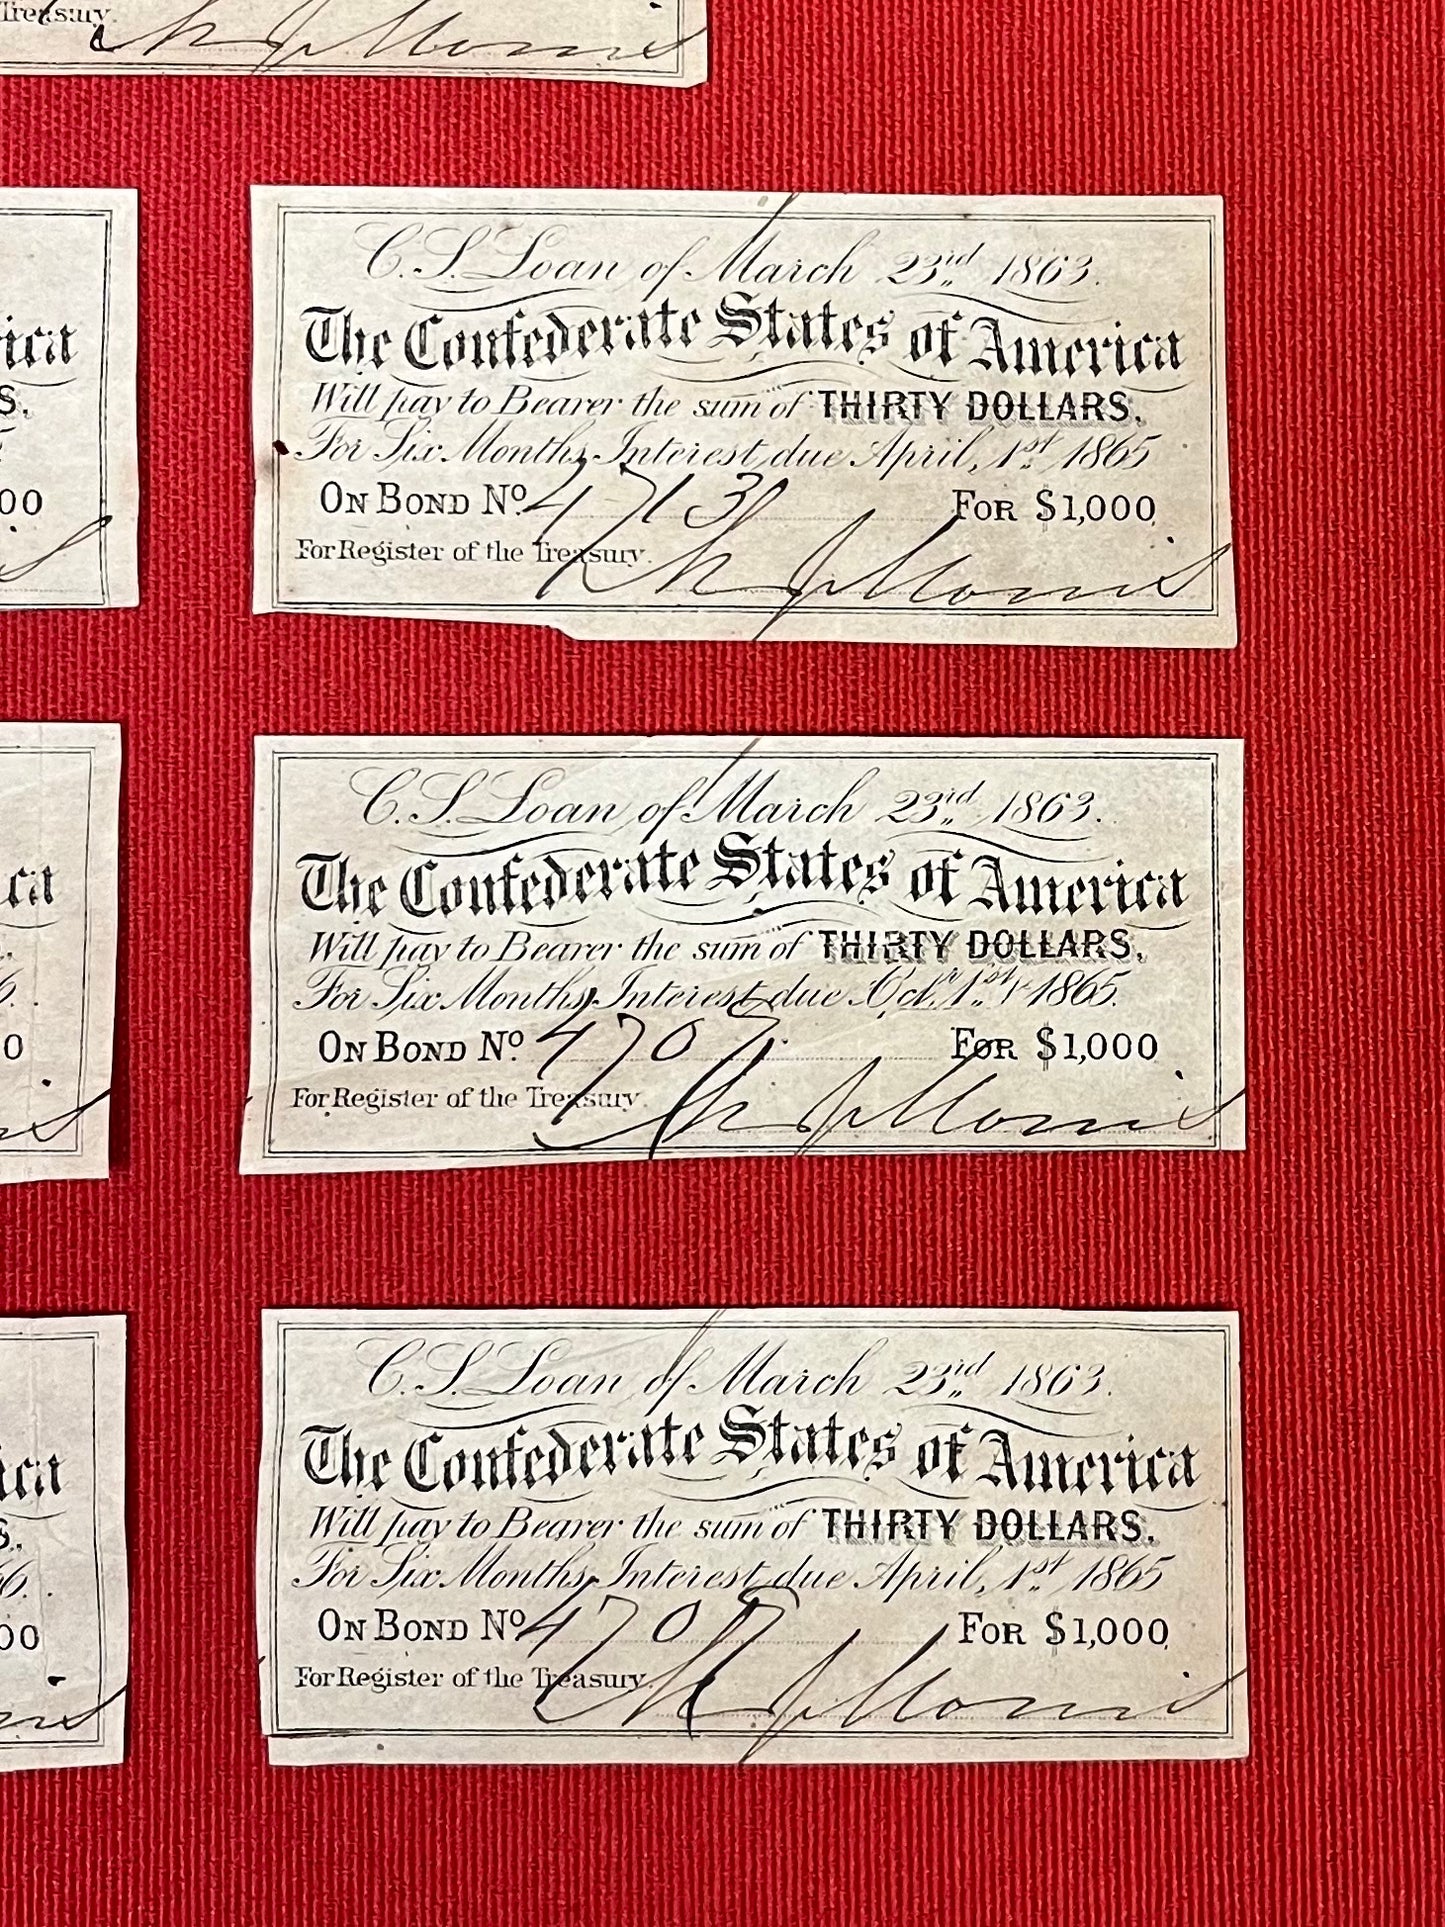 Treasury.
C. S. Loan of March 23rd 1863.
The Confederate States of America
Will pay to Bearer the sum of THIRTY DOLLARS.
For Six Months Interest due April, 1st 1865
ON BOND No. 4713 FOR $1,000
For Register of the Treasury. Morris
C. S. Loan of March 23rd 1863.
The Confederate States of America
Will pay to Bearer the sum of THIRTY DOLLARS.
For Six Months Interest due Octr. 1st 1865.
ON BOND No. 4707 FOR $1,000
For Register of the Treasury. Morris
C. S. Loan of March 23rd 1863.
The Confederate States of America
Will pay to Bearer the sum of THIRTY DOLLARS.
For Six Months Interest due April, 1st 1865
ON BOND No. 4707 FOR $1,000
For Register of the Treasury. Morris